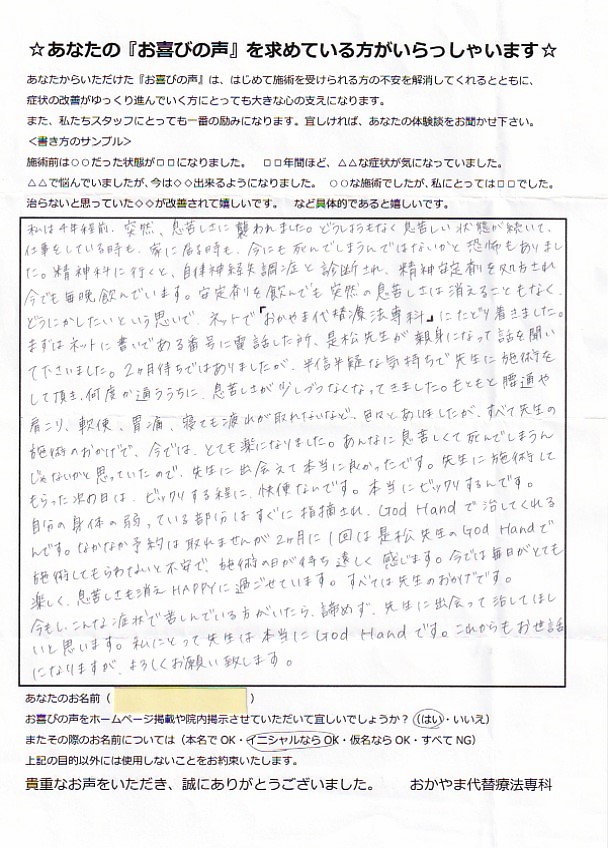 ☆あなたの『お喜びの声』を求めている方がいらっしゃいます☆
あなたからいただけた『お喜びの声』は、はじめて施術を受けられる方の不安を解消してくれるとともに、
症状の改善がゆっくり進んでいく方にとっても大きな心の支えになります。
また、私たちスタッフにとっても一番の励みになります。宜しければ、あなたの体験談をお聞かせ下さい。
＜書き方のサンプル＞
施術前は○○だった状態が□□になりました。　□□年間ほど、△△な症状が気になっていました。
△△で悩んでいましたが、今は◇◇出来るようになりました。　○○な施術でしたが、私にとっては□□でした。
治らないと思っていた◇◇が改善されて嬉しいです。　など具体的であると嬉しいです。
私は4年程前、突然、息苦しさに襲われました。どうしようもなく息苦しい状態が続いて、
仕事をしている時も、家に居る時も、今にも死んでしまうんではないかと恐怖もありまし
た。精神科に行くと、自律神経失調症と診断され、精神安定剤を処方され
今でも毎晩飲んでいます。安定剤を飲んでも突然の息苦しさは消えることもなく
どうにかしたいという思いで、ネットで『おかやま代替療法専科』にたどり着きました。
まずはネットに書いてある番号に電話した所、是松先生が親身になって話を聞い
て下さいました。2ヶ月待ちではありましたが、半信半疑な気持ちで先生に施術を
して頂き、何度か通ううちに、息苦しさが少しづつなくなってきました。もともと腰痛や
肩こり、軟便、胃痛、寝ても疲れが取れないなど、色々とありましたが、すべて先生の
施術のおかげで、今では、とても楽になりました。あんなに息苦しくて死んでしまうん
じゃないかと思っていたので、先生に出会えて本当に良かったです。先生に施術して
もらった次の日は、ビックリする程に、快便なんです。本当にビックリするんです。
自分の身体の弱っている部分はすぐに指摘され、God Handで治してくれる
んです。なかなか予約は取れませんが2ヶ月に1回は是松先生のGod Handで
施術してもらわないと不安で、施術の日が待ち遠しく感じます。今では毎日がとても
楽しく、息苦しさも消えHAPPYに過ごせています。すべては先生のおかげです。
今もし、こんな症状で苦しんでいる方がいたら、諦めず、先生に出会って治してほし
いと思います。私にとって先生は本当にGod Handです。これからもお世話
になりますが、よろしくお願い致します。
あなたのお名前（　　　　　　　）
お喜びの声をホームページ掲載や院内掲示させていただいて宜しいでしょうか？（はい・いいえ）
またその際のお名前については（本名でOK・イニシャルならOK・仮名ならOK・すべてNG）
上記の目的以外には使用しないことをお約束いたします。
貴重なお声をいただき、誠にありがとうございました。　　おかやま代替療法専科